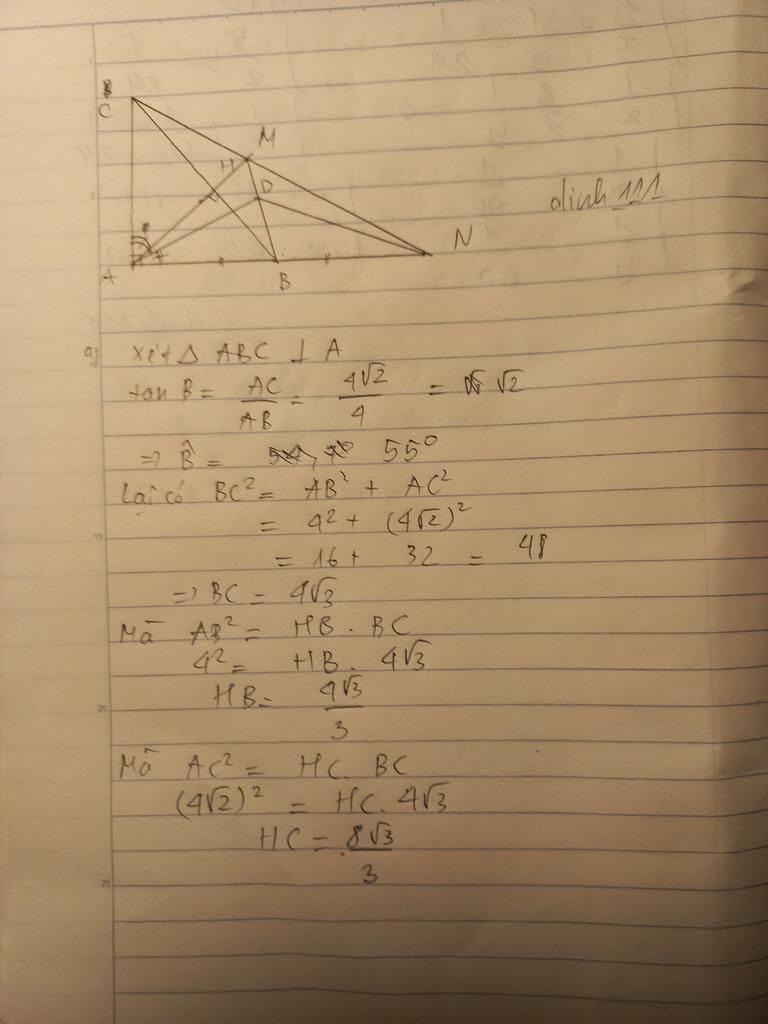 C
M
H
D
dinh 111
N
A
B
a) xét Δ ABC ⊥ A
tan B = AC/AB = 4√2/4 = √2
=> B̂ = 55°
Lại có BC² = AB² + AC²
= 4² + (4√2)²
= 16 + 32 = 48
=> BC = 4√3
Mà AB² = HB . BC
4² = HB . 4√3
HB = 4√3/3
Mà AC² = HC . BC
(4√2)² = HC . 4√3
HC = 8√3/3